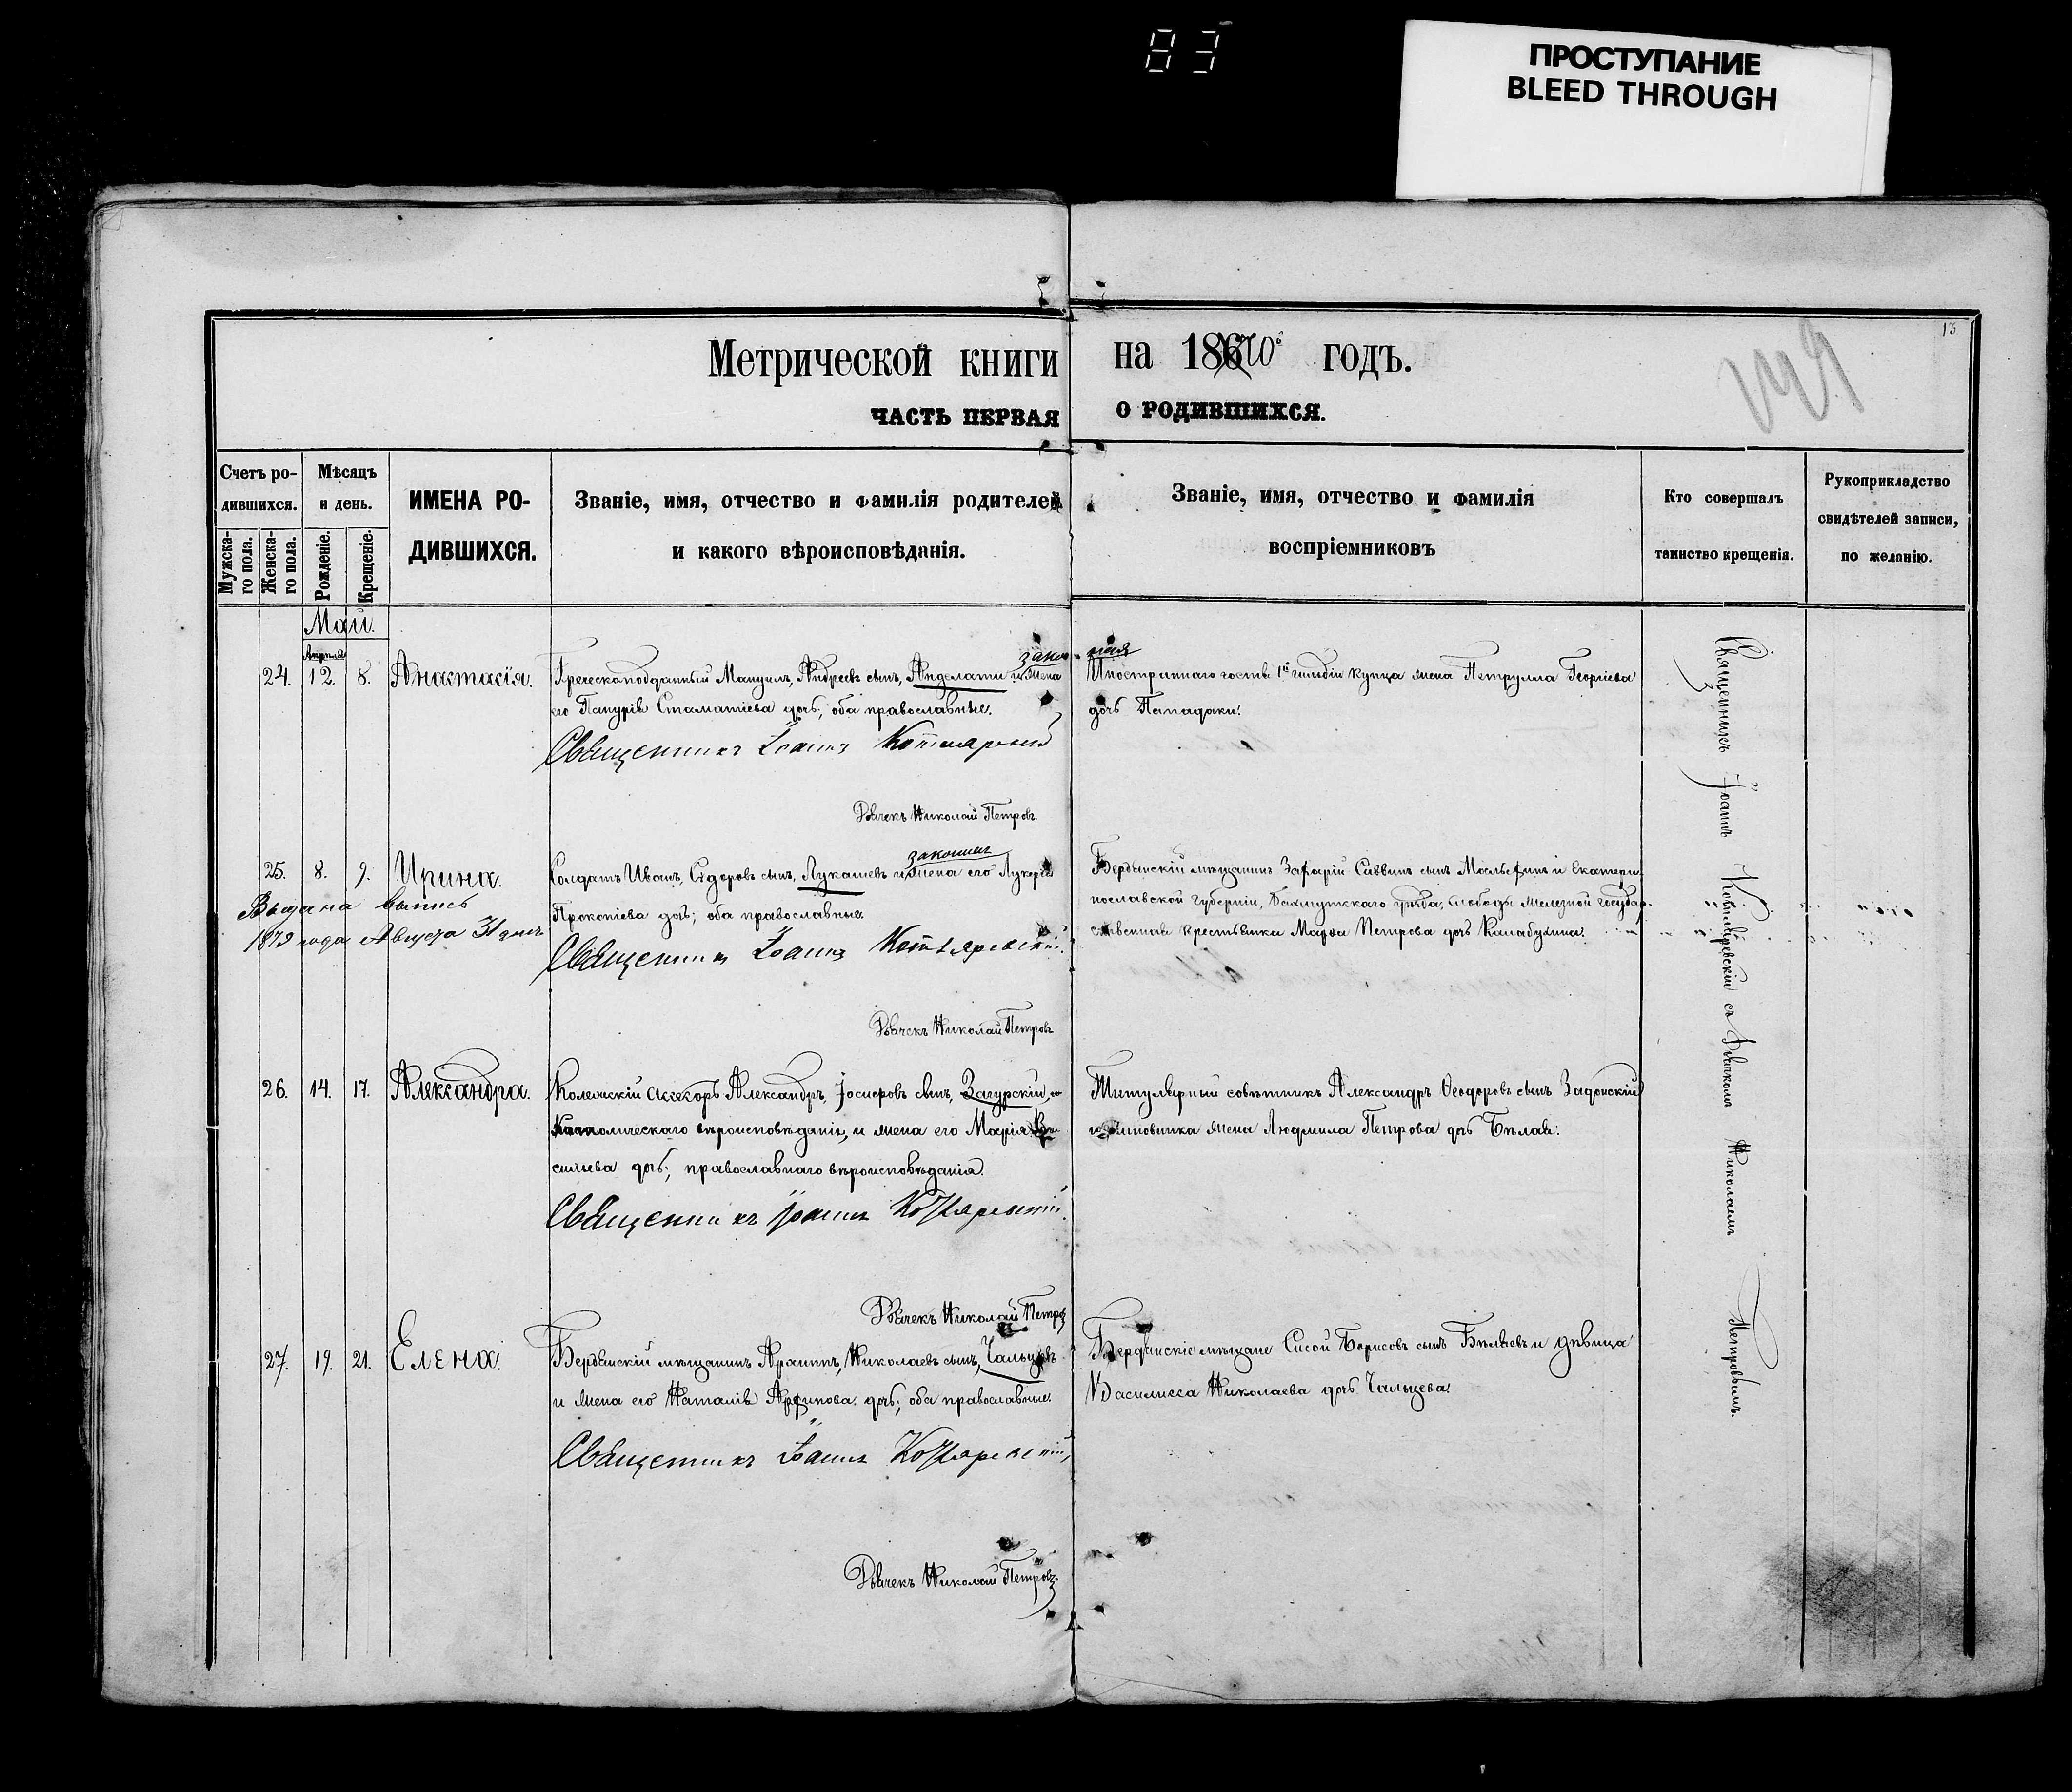 83
ПРОСТУПАНИЕ
BLEED THROUGH
13
Метрической книги на 1870 годъ.
ЧАСТЬ ПЕРВАЯ О РОДИВШИХСЯ.
Счетъ ро-
дившихся.
Мужска-
го пола.
Женска-
го пола.
Мѣсяцъ
и день.
Рожденіе.
Крещеніе.
ИМЕНА РО-
ДИВШИХСЯ.
Званіе, имя, отчество и фамилія родителей
и какого вѣроисповѣданія.
Званіе, имя, отчество и фамилія
воспріемниковъ
Кто совершалъ
таинство крещенія.
Рукоприкладство
свидѣтелей записи,
по желанію.
Май.
Апрѣля
24. 12. 8. Анастасія.
законная
Греческоподданный Мануилъ, Андреевъ сынъ, и жена
его Стаматіева дочь; оба православные.
Священникъ Іоаннъ Котляревскій
Дьячекъ Николай Петровъ
Иностраннаго гостя 1й гильдіи купца жена Петрулла Георгіева
дочь Пападаки.
25. 8. 9. Ирина.
Выдана выпись
1879 года Августа 31 дня
законная
Солдатъ Иванъ, Сидоровъ сынъ, Лукашевъ и жена его Лукерія
Прокопіева дочь; оба православные
Священникъ Іоаннъ Котляревскій
Дьячекъ Николай Петровъ
Бердянскій мѣщанинъ Захарій Саввинъ сынъ и Екатери-
нославской губерніи, Бахмутскаго уѣзда, слободы Железной государ-
ственная крестьянка Марѳа Петрова дочь Калабухина.
26. 14. 17. Александра.
Колежскій Асесоръ Александръ, Іосифовъ сынъ, Загурскій
Католическаго вѣроисповѣданія, и жена его Марія Ва-
сильева дочь; православнаго вѣроисповѣданія.
Священникъ Іоаннъ Котляревскій
Дьячекъ Николай Петровъ
Титулярный совѣтникъ Александръ Ѳеодоровъ сынъ Задонскій
и чиновника жена Людмила Петрова дочь Бѣлая.
27. 19. 21. Елена.
Бердянскій мѣщанинъ Николаевъ сынъ, Чальцевъ
и жена его Наталія дочь; оба православные.
Священникъ Іоаннъ Котляревскій
Дьячекъ Николай Петровъ
Бердянскіе мѣщане Сисой Борисовъ сынъ Бѣляевъ и дѣвица
Василисса Николаева дочь Чальцева.
Священникъ Іоаннъ Котляревскій съ Дьячкомъ Николаемъ Петровымъ.